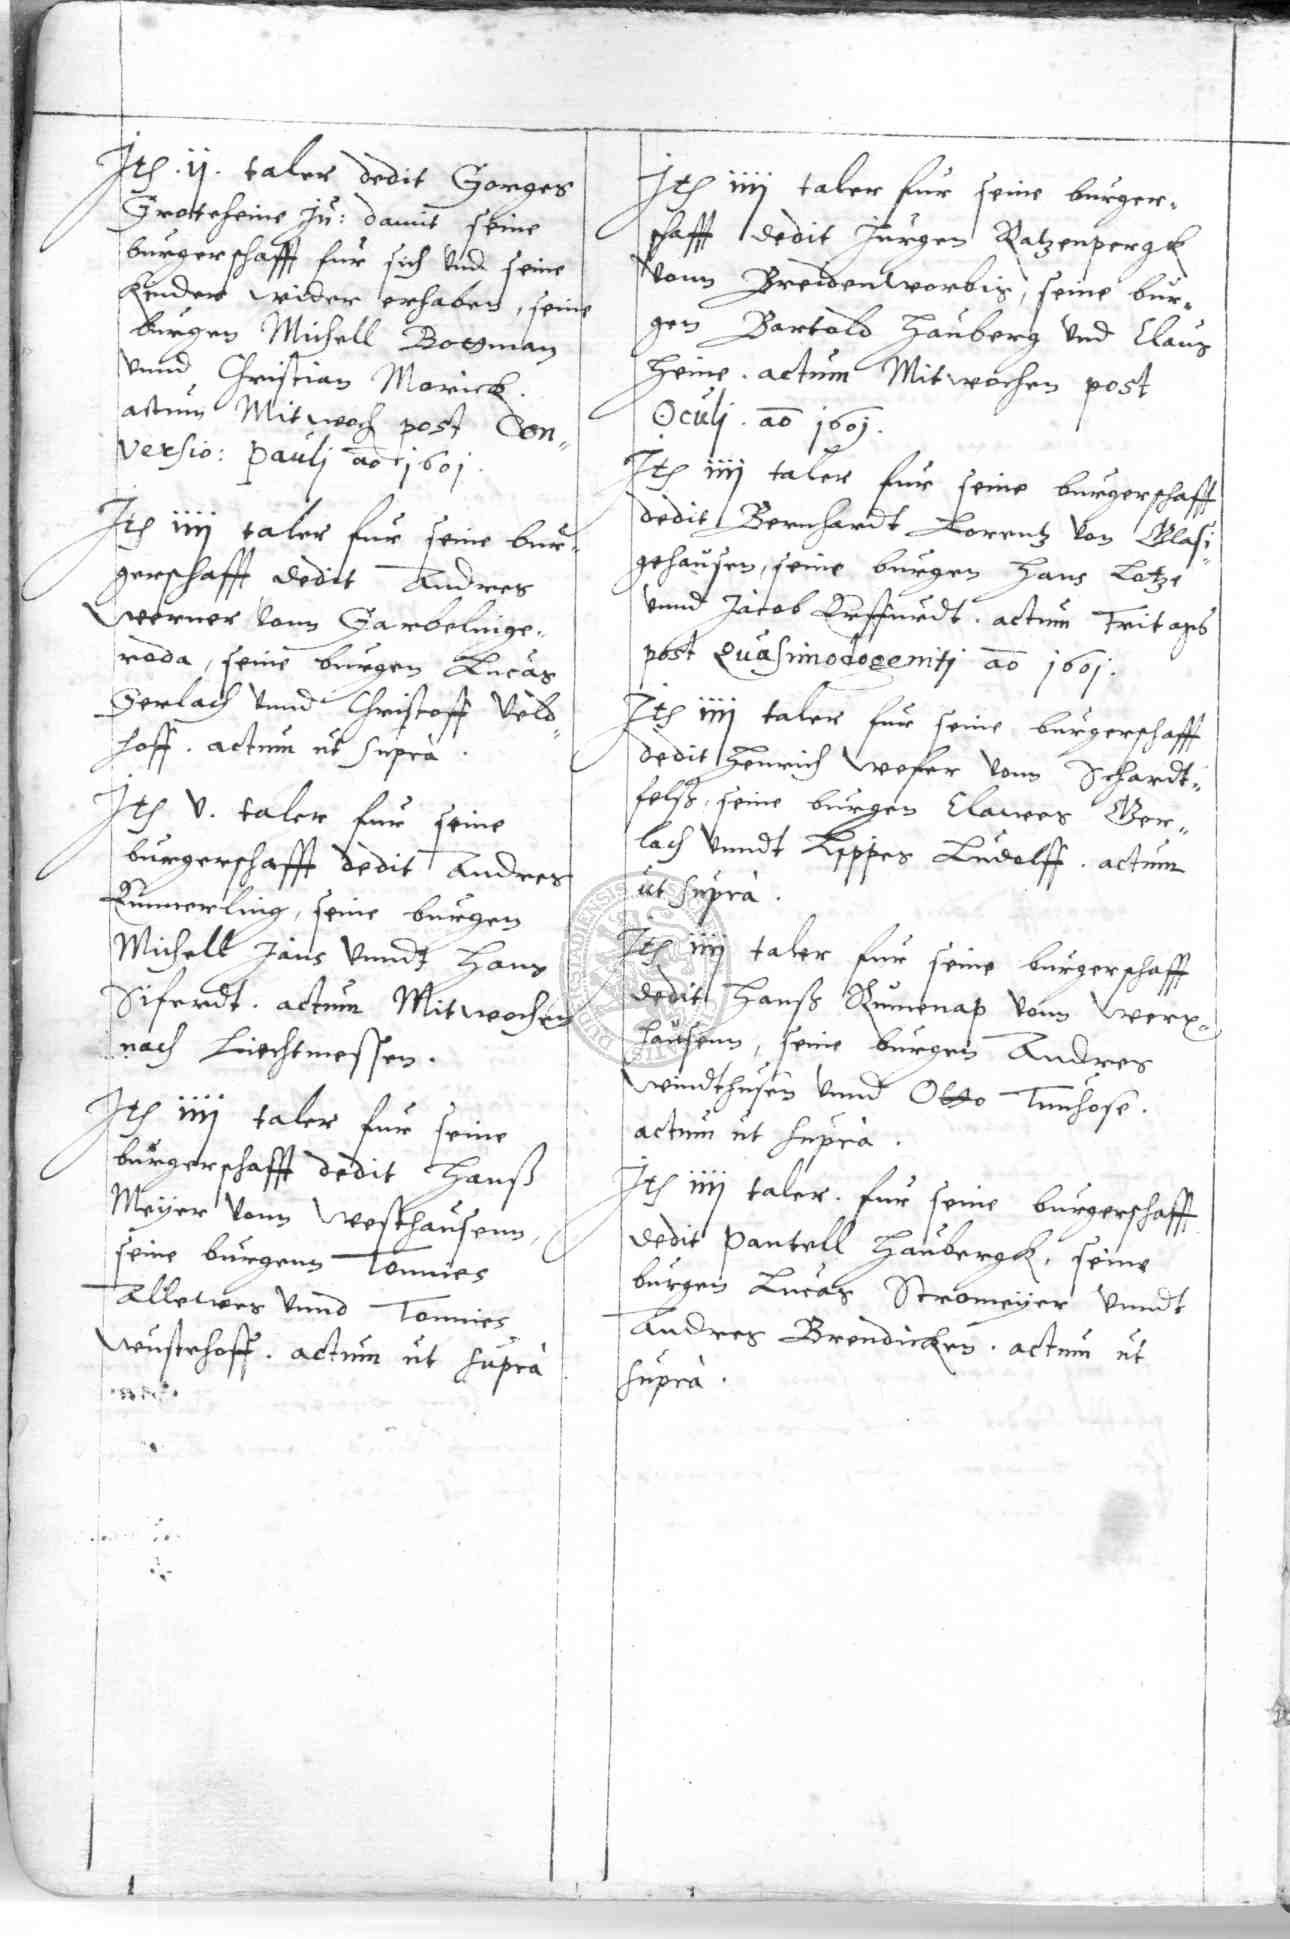 Itē .ij. taler dedit Gorges
Grotteheine Ju: damit seine
burgerschafft fur sich vnd seine
Kinder wider erhaben, seine
burgen Michell Bottman
vnnd Christian Morick.
actum Mitwoch post Con„
versio: Pauli aō 1601.
Itē iiij taler fur seine bur„
gerschafft dedit Andres
Werner vonn Garbelnige„
roda, seine burgen Lucas
Gerlach vnnd Christoff Veld„
hoff. actum ut suprà.
Itē v. taler fur seine
burgerschafft dedit Andres
Kummerling, seine burgen
Michell Jans vnndt Hans
Siferdt. actum Mitwochen
nach Liechtmessen.
Itē iiij taler fur seine
burgerschafft dedit Hanß
Meÿer vonn Westhausenn,
seine burgenn Tonnies
Allewes vnnd Tonnies
Wustehoff. actum ut suprà
Itē iiij taler fur seine burger„
schafft dedit Jurgen Katzenpergk
vonn Breidenworbis, seine bur„
gen Bartold Hauberg vnd Claus
Heine. actum Mitwochen post
Oculj. aō 1601.
Itē iiij taler fur seine burgerschafft
dedit Bernhardt Lorentz von Blasi„
gehausen, seine burgen Hans Lotze
vnnd Jacob Erffurdt. actum Fritags
post Quasimodogenitj aō 1601.
Itē iiij taler fur seine burgerschafft
dedit Henrich Wefer vonn Schardt„
felß, seine burgen Clawes Ger„
lach vnndt Lippes Ludolff. actum
ut suprà.
Itē iiij taler fur seine burgerschafft
dedit Hanß Rumenap vonn Werx„
hausenn, seine burgen Andres
Windthusen vnnd Otto Tunhose.
actum ut suprà.
Itē iiij taler. fur seine burgerschafft
dedit Pantell Haubergk, seine
burgen Lucas Stromeÿer vnndt
Andres Brendicken. actum ut
suprà.